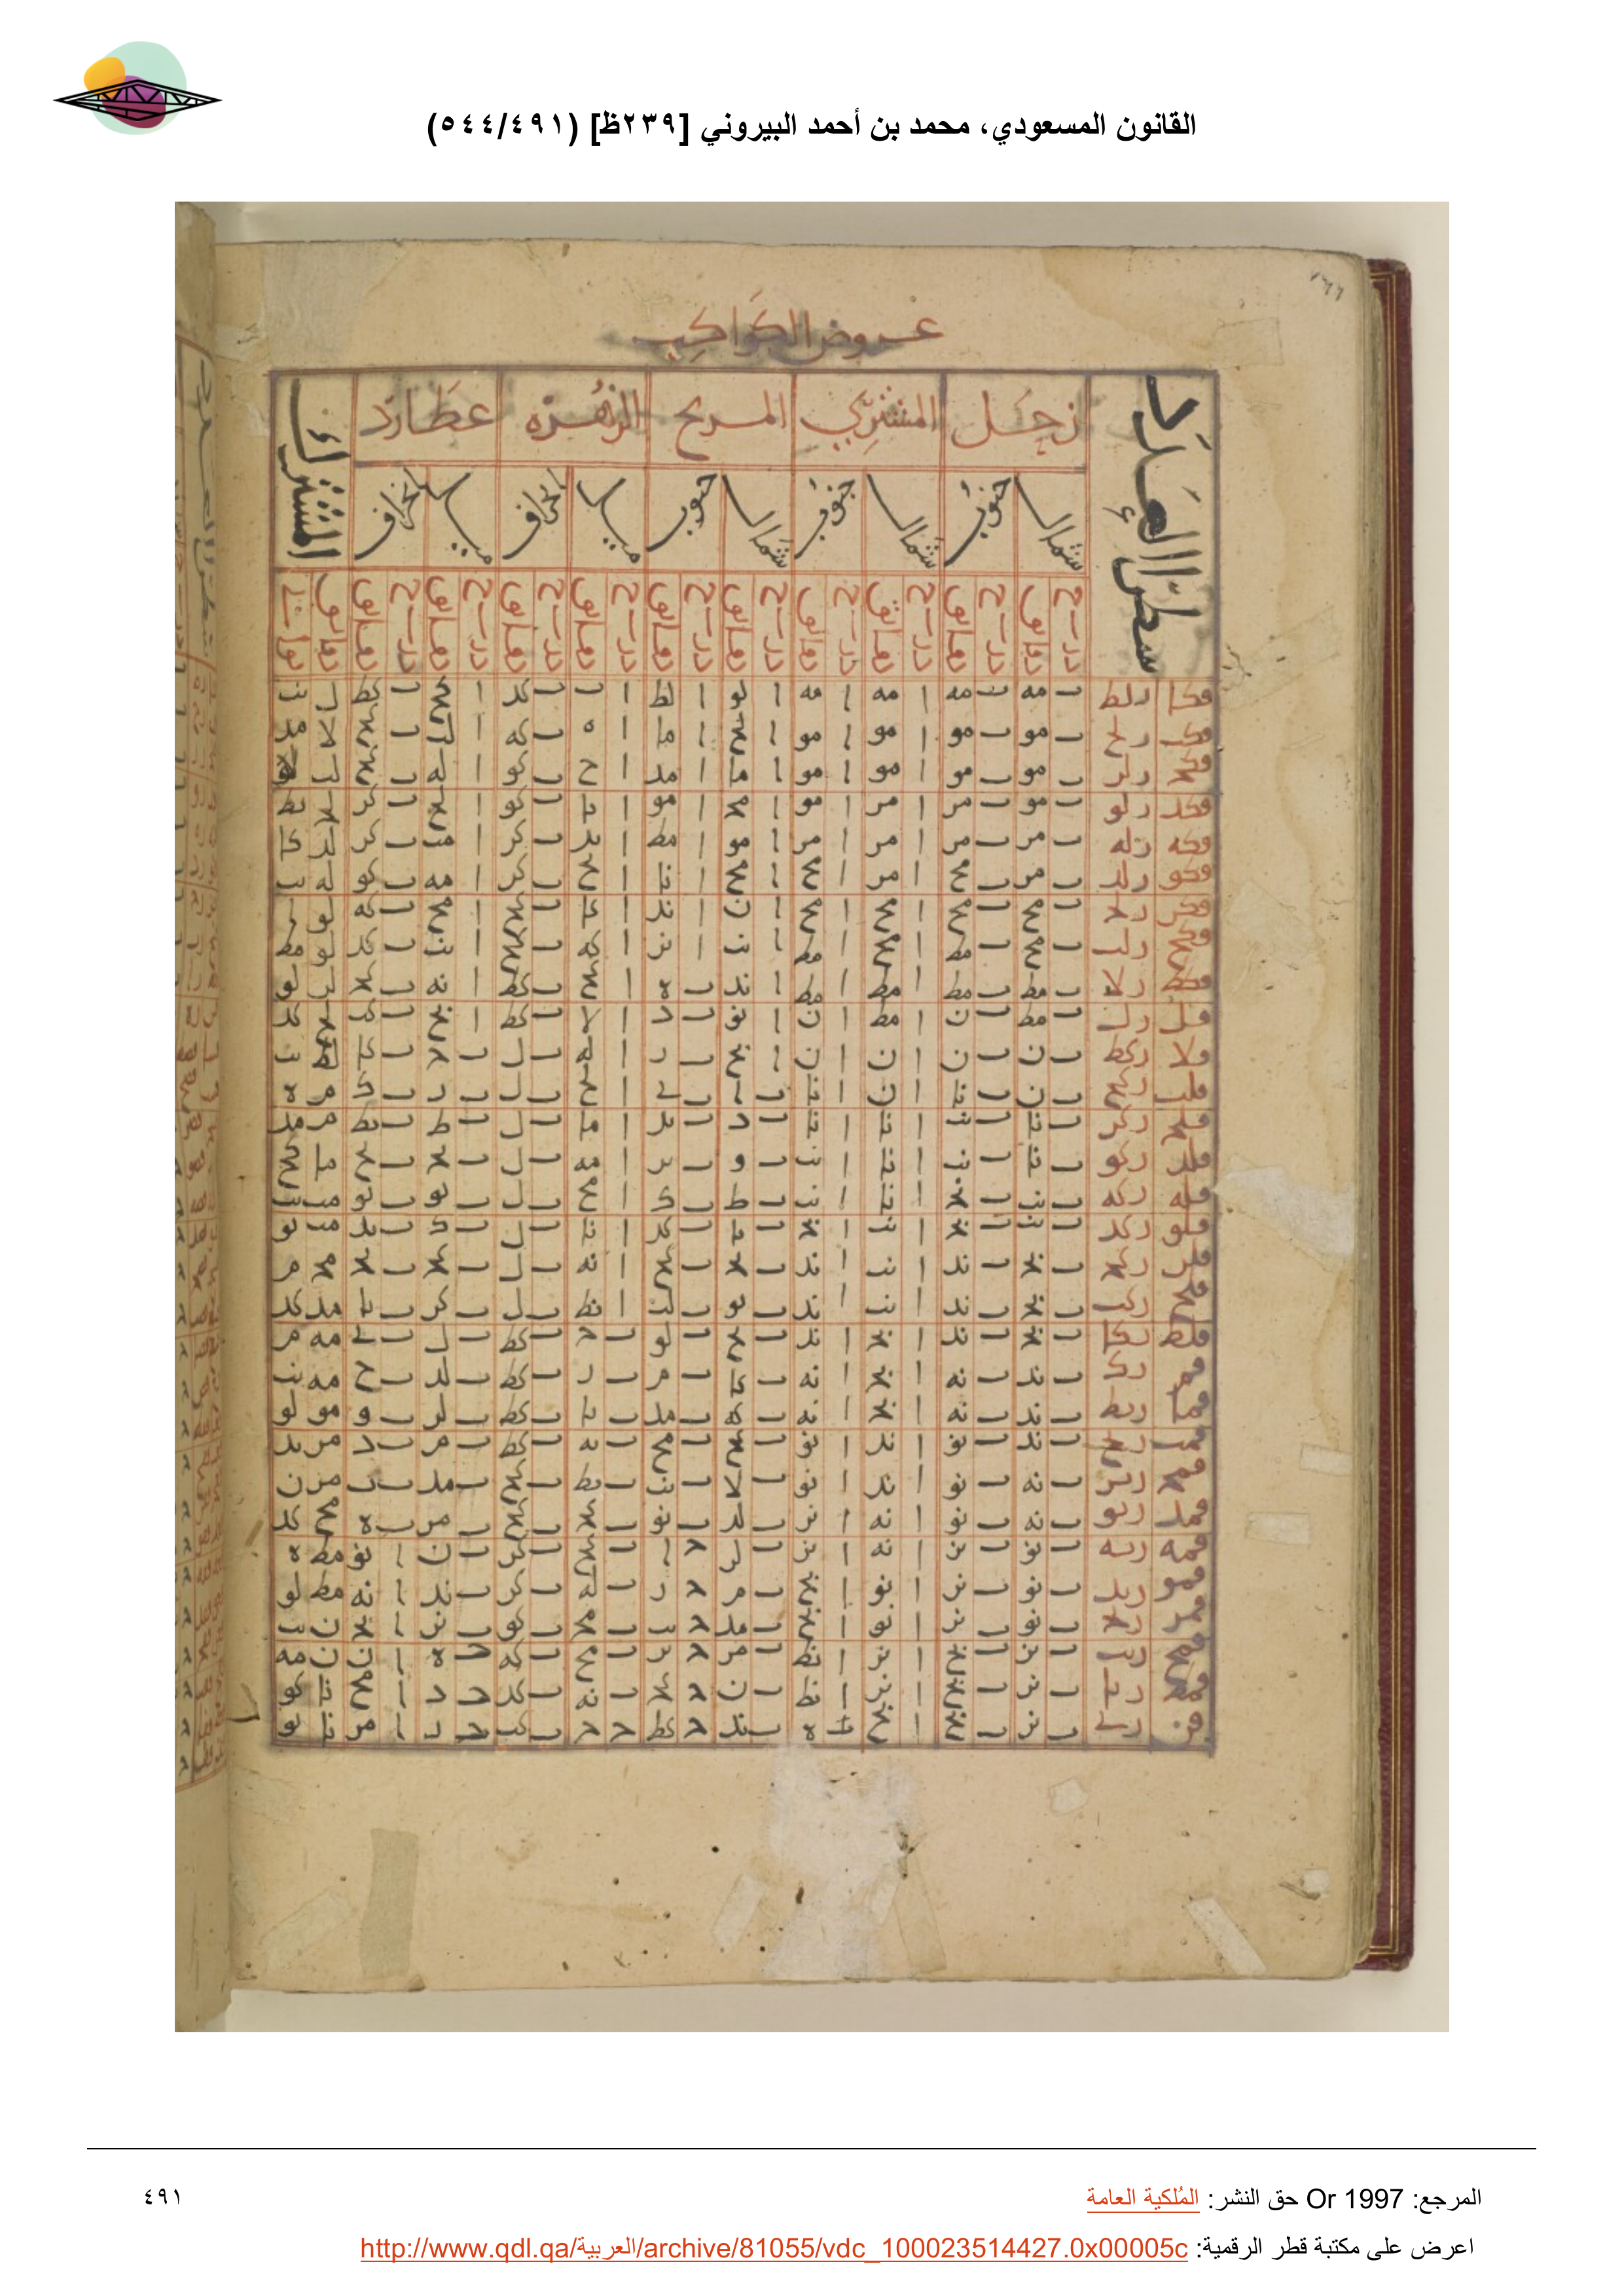 القانون المسعودي، محمد بن أحمد البيروني [٢٣٩ظ] (٥٤٤/٤٩١)
١٦٦
عروض الكواكب
سطرا العدد زحل المشتري المريخ الزهرة عطارد المشترك
شمال جنوب شمال جنوب شمال جنوب ميل انحراف ميل انحراف
درج دقايق درج دقايق درج دقايق درج دقايق درج دقايق درج دقايق درج دقايق درج دقايق درج دقايق درج دقايق دقايق ثواني
قكا رلط ب مه ب مه ا مه ا مه ا لو ا لط ا ب ب كد ا كح ب كط ل نب
قكب رلح ب مو ب مو ا مو ا مو ا لح ا ما ا ه ب كه ا لب ب كح لا مد
قكج رلز ب مو ب مو ا مو ا مو ا ما ا مد ا ح ب كو ا له ب كح لب لو
قكد رلو ب مو ب مز ا مز ا مو ا مج ا مو ا يا ب كو ا لح ب كز لج كط
قكه رله ب مز ب مز ا مز ا مز ا مو ا مط ا يد ب كز ا مب ب كز لد كا
قكو رلد ب مز ب مح ا مز ا مح ا مح ا نا ا يح ب كز ا مه ب كو له يب
قكز رلج ب مح ب مح ا مح ا مح ا ن ا ند ا كا ب كح ا مح ب كه لو
قكح رلب ب مح ب مط ا مح ا مط ا نب ا نز ا كه ب كح ا نب ب كد لو مط
قكط رلا ب مط ب مط ا مط ا مط ا ند ب ه ا كح ب كط ا نه ب كج لز لو
قل رل ب مط ب ن ا مط ا ن ا نو ب د ا لا ب كط ا نح ب كب لح كد
قلا ركط ب ن ب ن ا ن ا ن ا نح ب ز ا له ب ل ب ج ب كا لط يب
قلب ركح ب ن ب نا ا ن ا نا ب ا ب ي ا لح ب ل ب ز ب ك م ه
قلج ركز ب نا ب نب ا نا ا نا ب د ب يد ا ما ب ل ب ط ب يط م مد
قلد ركو ب نا ب نب ا نا ا نب ب و ب يز ا مه ب ل ب يج ب يح ما كح
قله ركه ب نب ب نج ا نا ا نب ب ط ب ك ا مح ب ل ب يو ب يو مب يب
قلو ركد ب نب ب نج ا نب ا نج ب يا ب كد ا نا ب ل ب ك ب يد مب نو
قلز ركج ب نج ب ند ا نب ا ند ب يج ب كح ا نه ب ل ب كج ب يج مج م
قلح ركب ب نج ب ند ا نب ا ند ب يو ب لب ا نط ب ل ب كز ب يا مد كد
قلط ركا ب نج ب ند ا نج ا ند ب يح ب لو ب ج ب كط ب ل ب ي مه م
قم رك ب ند ب نه ا نج ا نه ب كا ب م ب ز ب كط ب لد ب ح مه نب
قما ريط ب ند ب نه ا نج ا نه ب كه ب مد ب يا ب كط ب لز ب و مو لو
قمب ريح ب ند ب نو ا ند ا نو ب كح ب مح ب يه ب كط ب م ب د مز يد
قمج ريز ب نه ب نو ا ند ا نو ب لا ب نب ب يط ب كح ب مد ب ب مز ن
قمد ريو ب نه ب نو ا نه ا نز ب لد ب نو ب كج ب كح ب مز ب ه مح كد
قمه ريه ب نو ب نز ا نه ا نز ب لز ج ا ب كح ب كز ب ن ا نو مط ه
قمو ريد ب نو ب نز ا نو ا نح ب م ج ز ب له ب كز ب ند ا نه مط لو
قمز ريج ب نو ب نز ا نو ا نح ب مد ج يب ب مج ب كو ب نز ا نج ن يب
قمح ريب ب نز ب نح ا نز ا نط ب مز ج يز ب مح ب كه ج ه ا ن ن مه
قمط ريا ب نز ب نح ا نز ا نط ب ن ج كج ب نه ب كد ج د ا مح نا كو
قن ري ب نز ب نح ا نح ب ه ب ند ج كط ج ج ب كب ج ز ا مز نا نو
المرجع: Or 1997 حق النشر: المُلكية العامة
٤٩١
اعرض على مكتبة قطر الرقمية: http://www.qdl.qa/العربية/archive/81055/vdc_100023514427.0x00005c